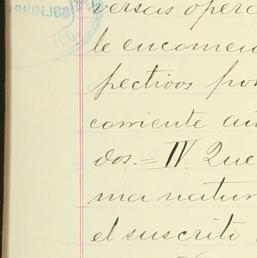 PÚBLICO
versas opera
le encomen
pectivos por
corriente añ
dos.= IV. Que
ma natur
el suscrito